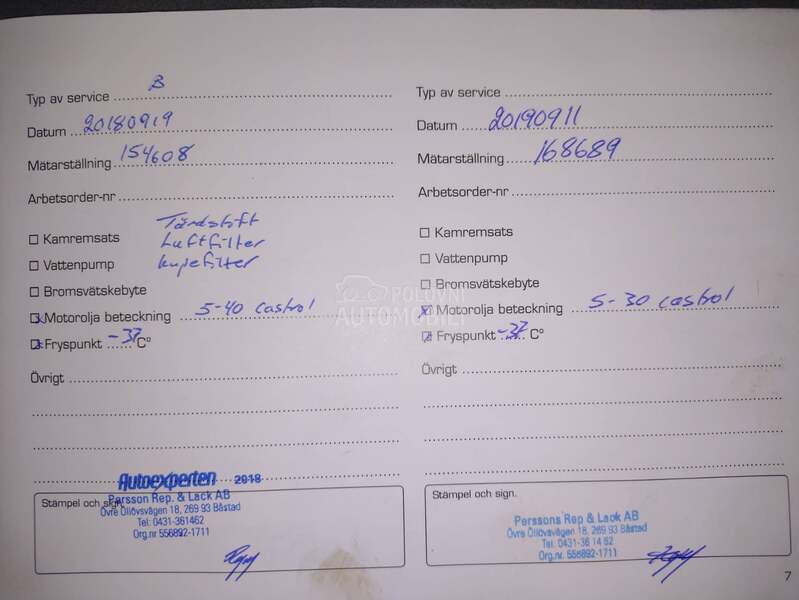 Typ av service B
Datum 20180919
Mätarställning 154608
Arbetsorder-nr
Tändstift
Kamremsats Luftfilter
Vattenpump kupefilter
Bromsvätskebyte
x Motorolja beteckning 5-40 castrol
x Fryspunkt -37 C°
Övrigt
Autoexperten 2018
Stämpel och sign.
Persson Rep. & Lack AB
Övre Ollövsvägen 18, 269 93 Båstad
Tel: 0431-361462
Org.nr 556892-1711
Typ av service
Datum 20190911
Mätarställning 168689
Arbetsorder-nr
Kamremsats
Vattenpump
Bromsvätskebyte
x Motorolja beteckning 5-30 castrol
x Fryspunkt -37 C°
Övrigt
Stämpel och sign.
Perssons Rep & Lack AB
Övre Ollövsvägen 18, 269 93 Båstad
Tel. 0431-36 14 62
Org.nr. 556892-1711
7
POLOVNI
AUTOMOBILI